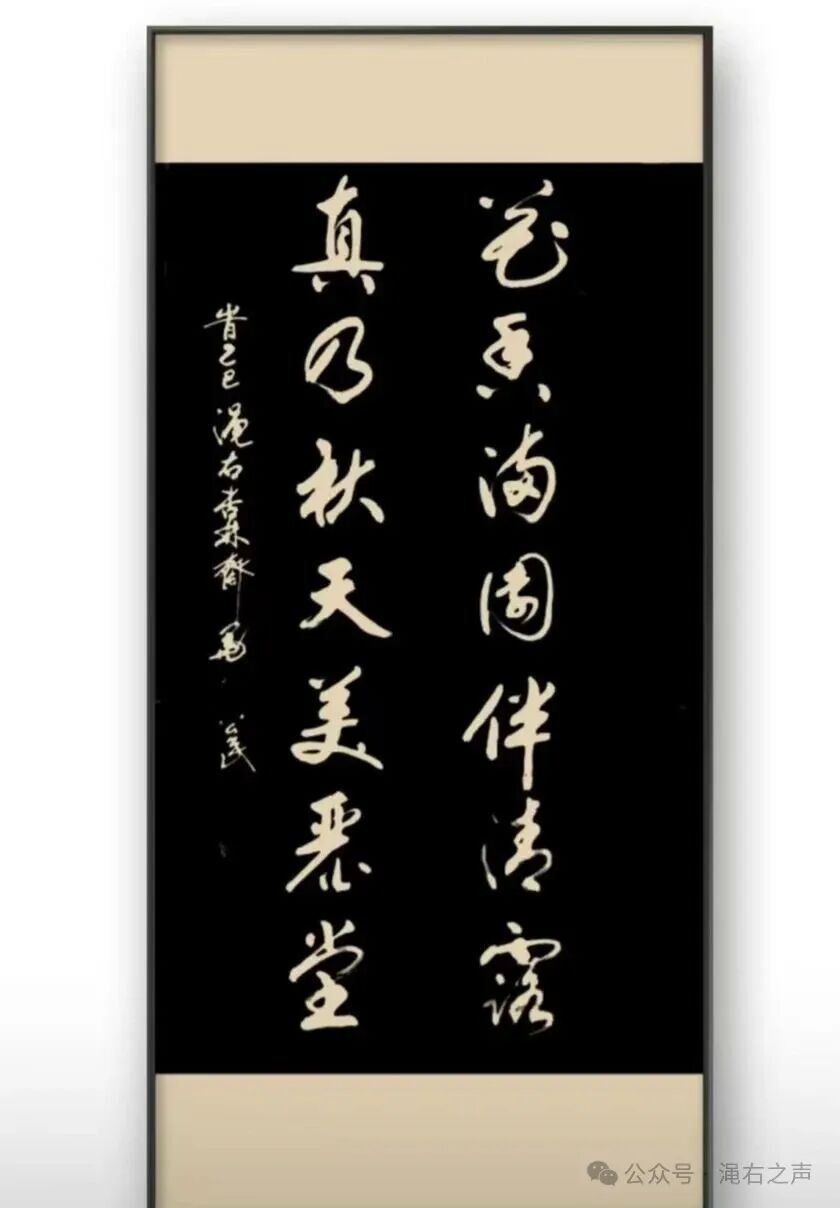 花香满园伴清露
真乃秋天美堂
旹乙巳渑右杏林齋
公众号·渑右之声